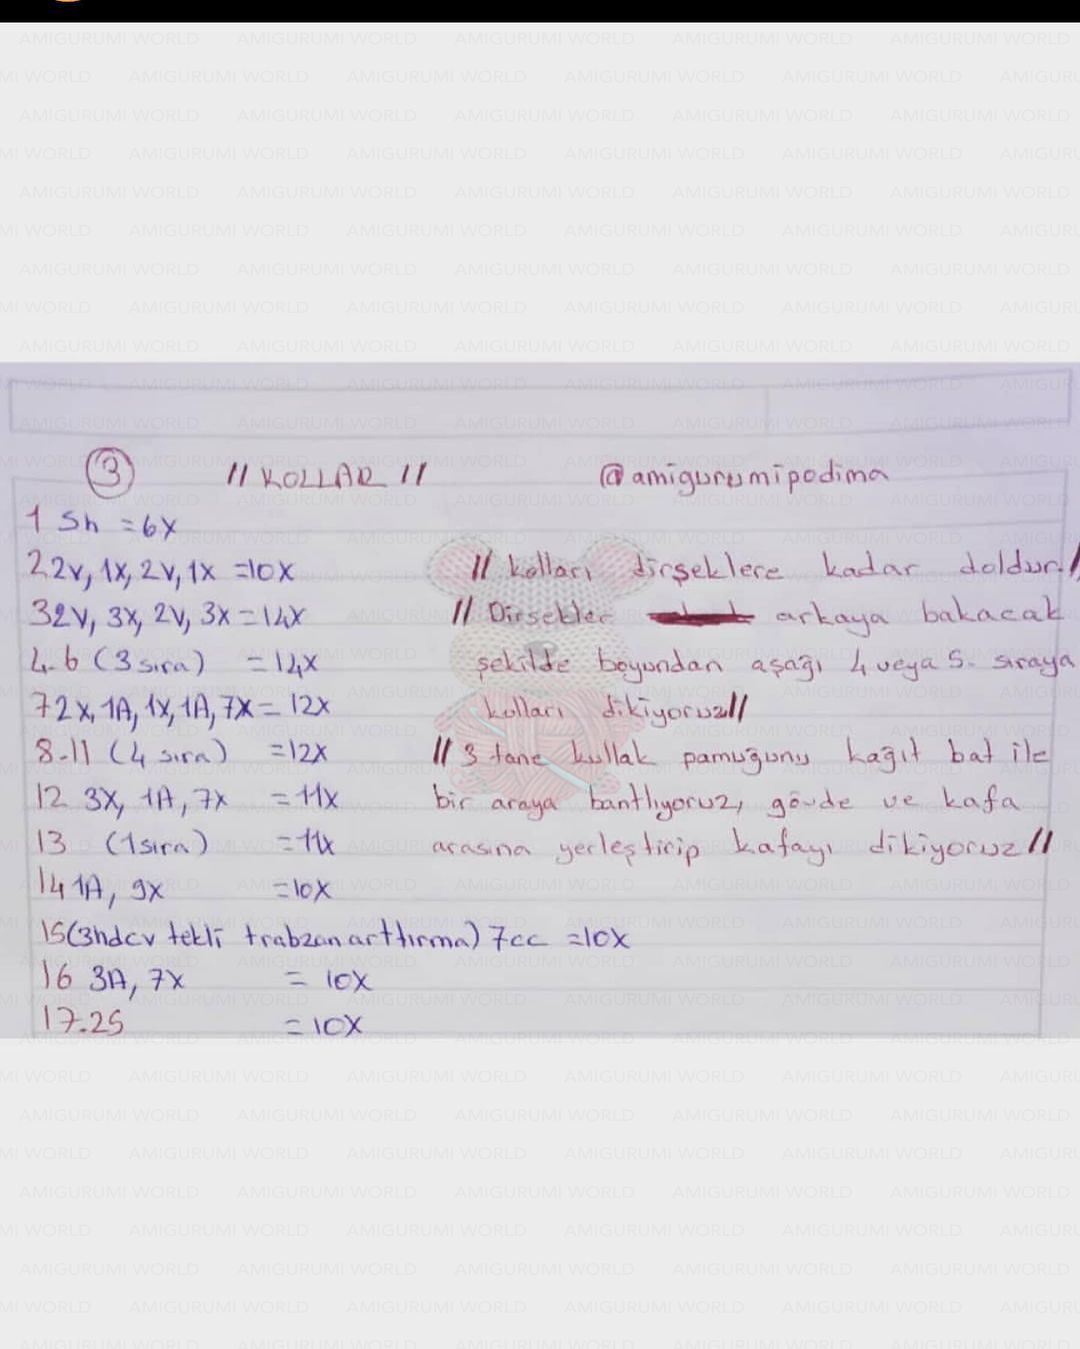 3 // KOLLAR // @amigurumipodima
1 Sh = 6x
2 2v, 1x, 2v, 1x = 10x
3 2v, 3x, 2v, 3x = 14x
4-6 (3 sıra) = 14x
7 2x, 1A, 1x, 1A, 7x = 12x
8-11 (4 sıra) = 12x
12 3x, 1A, 7x = 11x
13 (1 sıra) = 11x
14 1A, 9x = 10x
15 (3hdcv tekli trabzan arttırma) 7cc = 10x
16 3A, 7x = 10x
17.25 = 10x
// kolları dirseklere kadar doldur. //
// Dirsekler arkaya bakacak
şekilde boyundan aşağı 4 veya 5. sıraya
kolları dikiyoruz //
// 3 tane kullak pamuğunu kağıt bat ile
bir araya bantlıyoruz, gövde ve kafa
arasına yerleştirip kafayı dikiyoruz //
AMIGURUMI WORLD